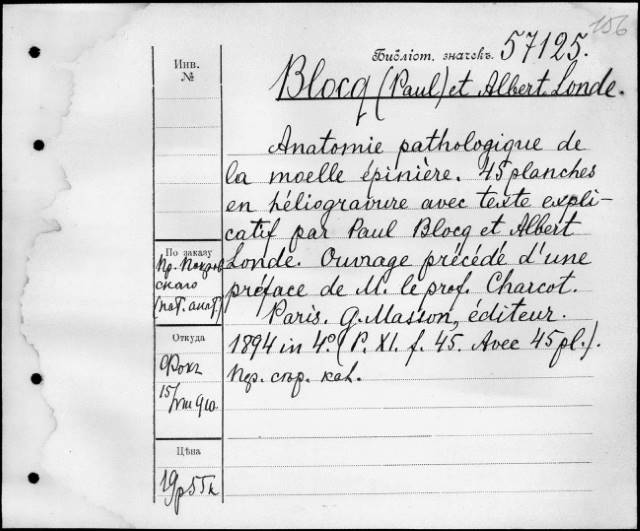 156
Библіот. значекъ 57125.
Инв.
№
Blocq (Paul) et Albert Londe.
Anatomie pathologique de
la moelle épinière. 45 planches
en héliogravure avec texte expli-
catif par Paul Blocq et Albert
Londe. Ouvrage précédé d'une
préface de M. le prof. Charcot.
Paris. G. Masson, éditeur.
1894 in 4°. (P. XI. f. 45. Avec 45 pl.).
По заказу
Пр. Покров
скаго
(пат. анат.)
Откуда
Фокъ
15/VIII 910.
Цѣна
19р 55к